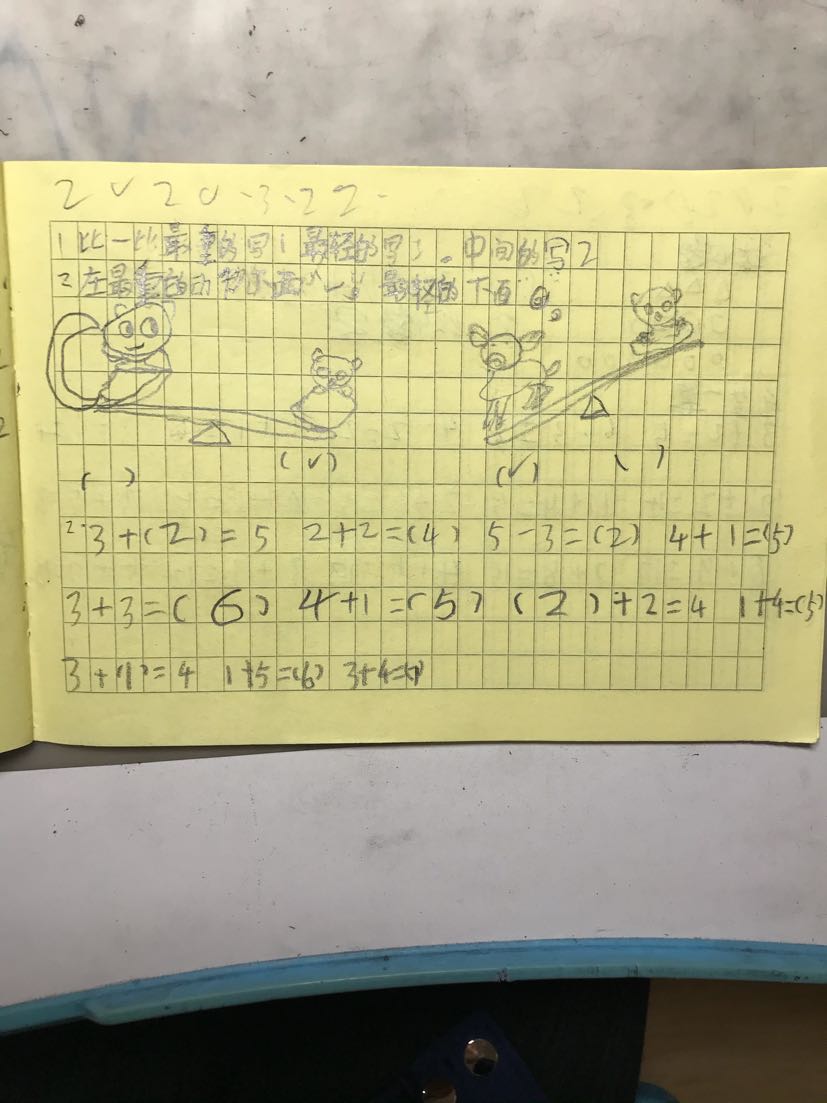 2 √ 2 0 · 3 · 2 2 ·
1 比一比最重的写1 最轻的写3。中间的写2
2 在最重的动物下面"√" 最轻的下面 0。
( ) (√) (√) ( )
2. 3+(2)=5 2+2=(4) 5-3=(2) 4+1=(5)
3+3=(6) 4+1=(5) (2)+2=4 1+4=(5)
3+(1)=4 1+5=(6) 3+4=(7)